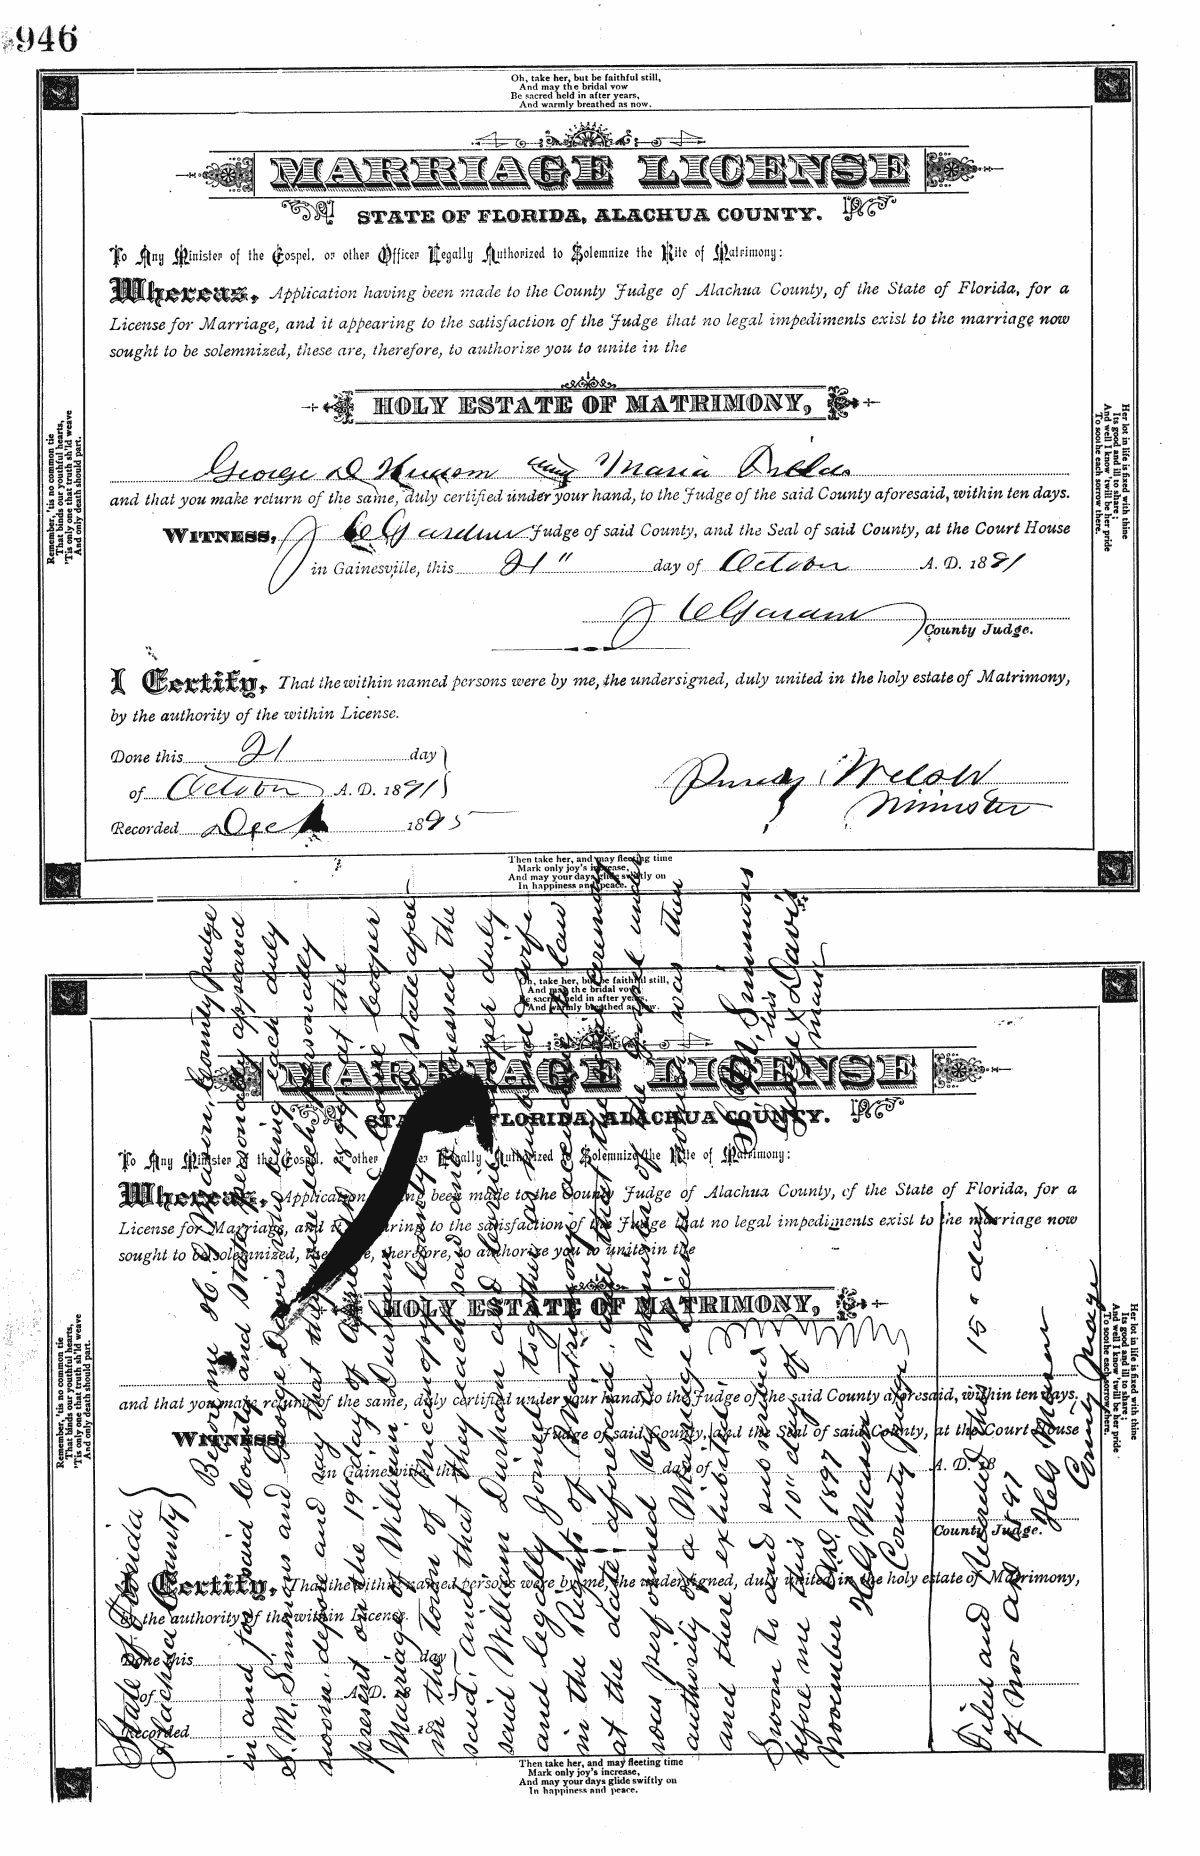 946
Oh, take her, but be faithful still,
And may the bridal vow
Be sacred held in after years,
And warmly breathed as now.
MARRIAGE LICENSE
STATE OF FLORIDA, ALACHUA COUNTY.
To Any Minister of the Gospel, or other Officer Legally Authorized to Solemnize the Rite of Matrimony:
Whereas, Application having been made to the County Judge of Alachua County, of the State of Florida, for a
License for Marriage, and it appearing to the satisfaction of the Judge that no legal impediments exist to the marriage now
sought to be solemnized, these are, therefore, to authorize you to unite in the
HOLY ESTATE OF MATRIMONY,
George D and Maria
and that you make return of the same, duly certified under your hand, to the Judge of the said County aforesaid, within ten days.
WITNESS, J C Gardner Judge of said County, and the Seal of said County, at the Court House
in Gainesville, this 21" day of October A. D. 1891
J C Gardner
County Judge.
I Certify, That the within named persons were by me, the undersigned, duly united in the holy estate of Matrimony,
by the authority of the within License.
Done this 21 day
of October A. D. 1891
Welsh
Minister
Recorded Dec 1895
Remember, 'tis no common tie
That binds our youthful hearts,
'Tis only one that truth sh'ld weave
And only death should part.
Her lot in life is fixed with thine
Its good and ill to share;
And well I know 'twill be her pride
To soothe each sorrow there.
Then take her, and may fleeting time
Mark only joy's increase,
And may your days glide swiftly on
In happiness and peace.
Oh, take her, but be faithful still,
And may the bridal vow
Be sacred held in after years,
And warmly breathed as now.
MARRIAGE LICENSE
STATE OF FLORIDA, ALACHUA COUNTY.
To Any Minister of the Gospel, or other Officer Legally Authorized to Solemnize the Rite of Matrimony:
Whereas, Application having been made to the County Judge of Alachua County, of the State of Florida, for a
License for Marriage, and it appearing to the satisfaction of the Judge that no legal impediments exist to the marriage now
sought to be solemnized, these are, therefore, to authorize you to unite in the
HOLY ESTATE OF MATRIMONY,
and that you make return of the same, duly certified under your hand, to the Judge of the said County aforesaid, within ten days.
WITNESS, Judge of said County, and the Seal of said County, at the Court House
in Gainesville, this day of A. D. 18
County Judge.
I Certify, That the within named persons were by me, the undersigned, duly united in the holy estate of Matrimony,
by the authority of the within License.
Done this day
of A. D. 18
Recorded 18
Remember, 'tis no common tie
That binds our youthful hearts,
'Tis only one that truth sh'ld weave
And only death should part.
Her lot in life is fixed with thine
Its good and ill to share;
And well I know 'twill be her pride
To soothe each sorrow there.
Then take her, and may fleeting time
Mark only joy's increase,
And may your days glide swiftly on
In happiness and peace.
State of Florida
Alachua County
Before me H. G. Mason, County Judge
in and for said County and State personally appeared
S. M. Simmons and George Davis who being each duly
sworn depose and say that they were each personally
present on the 19" day of at the
Marriage of William Durham Cooper
in the town of Micanopy County State afore
said, and that they each said and witnessed the
said William Durham and Cooper duly
and legally joined together as man and wife
in the Rights of Matrimony, according to law
at the date aforesaid, and that the ceremony
was performed by a Minister of the Gospel under
authority of a Marriage License which was then
and there exhibited
S. M. Simmons
his
George X Davis
mark
Sworn to and subscribed
before me this 10" day of
November A.D. 1897
H. G. Mason
County Judge
Filed and Recorded this 15" day
of Nov AD 1897
H. G. Mason
County Judge